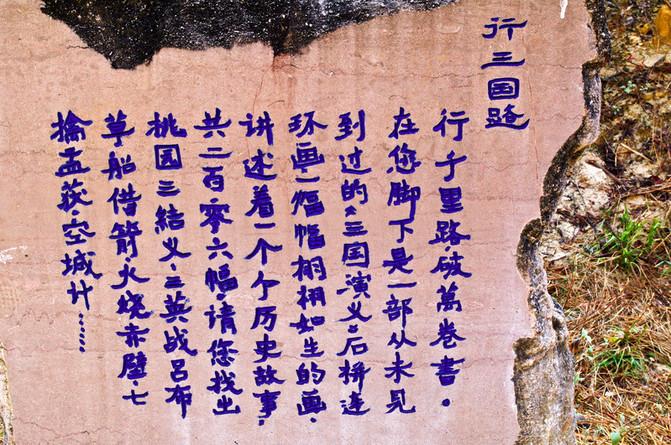 行三国路
行千里路破萬卷書。
在您脚下是一部从未见
到过的《三国演义》石拼连
环画，一幅幅栩栩如生的画，
讲述着一个个历史故事，
共二百零六幅，请您找出
桃园三結义、三英战吕布
草船借箭、火烧赤壁、七
擒孟获、空城计……